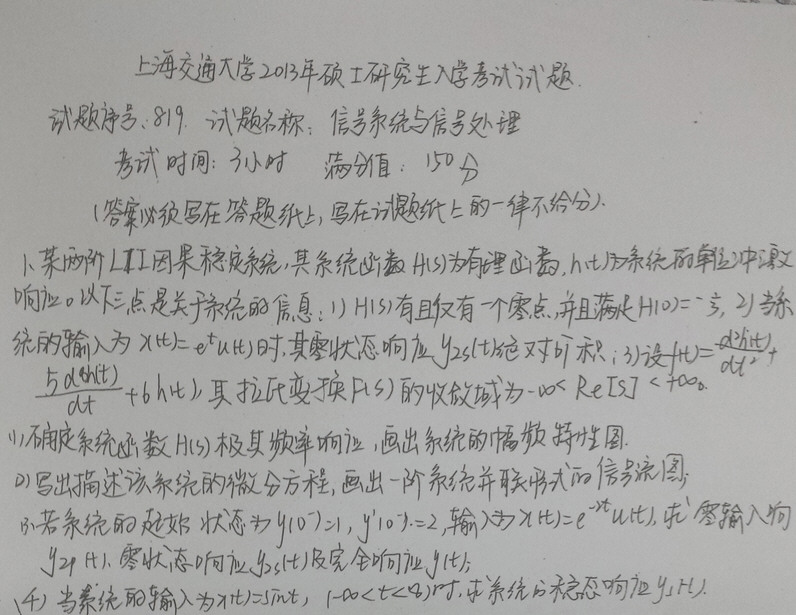 上海交通大学2013年硕士研究生入学考试试题.
试题序号:819. 试题名称: 信号系统与信号处理
考试时间: 3小时 满分值: 150分
(答案必须写在答题纸上,写在试题纸上的一律不给分).
1、某两阶LTI因果稳定系统,其系统函数H(s)为有理函数,h(t)为系统的单位冲激
响应。以下三点是关于系统的信息: 1) H(s)有且仅有一个零点,并且满足H(0)=-⅓, 2)当系
统的输入为 x(t)=eᵗu(t)时,其零状态响应yzs(t)绝对可积; 3)设f(t)=d²h(t)/dt²+
5dh(t)/dt+6h(t), 其拉氏变换F(s)的收敛域为-∞<Re[s]<+∞。
(1)确定系统函数H(s)极其频率响应,画出系统的幅频特性图.
(2)写出描述该系统的微分方程,画出一阶系统并联形式的信号流图;
(3)若系统的起始状态为y(0⁻)=1, y'(0⁻)=2,输入为x(t)=e⁻²ᵗu(t),求零输入响
yzp(t)、零状态响应yzs(t)及完全响应y(t);
(4) 当系统的输入为x(t)=sint, (-∞<t<∞)时,求系统的稳态响应ys(t).